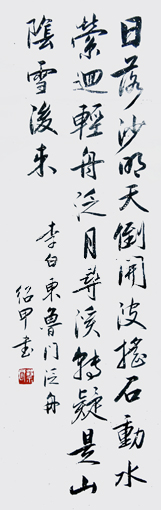 日落沙明天倒開波搖石動水
縈迴輕舟泛月尋溪轉疑是山
陰雪後来
李白東魯门泛舟
绍甲书